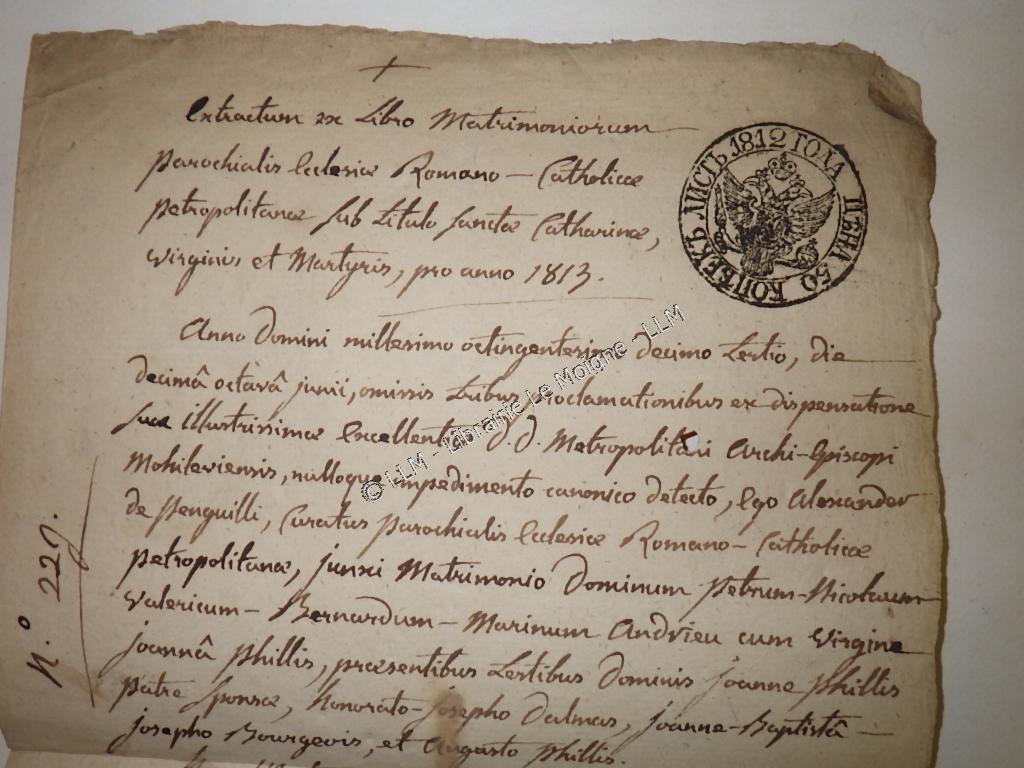 Extractum ex Libro Matrimoniorum
parochialis Ecclesiæ Romano-Catholicæ
petropolitanæ sub titulo Sanctæ Catharinæ,
Virginis et Martyris, pro anno 1813.
ЛИСТЪ 1812 ГОДА ЦѢНА 50 КОПѢЕКЪ
Anno Domini millesimo octingentesimo decimo tertio, die
decimâ octavâ junii, omissis tribus proclamationibus ex dispensatione
suæ illustrissimæ Excellentiæ d. d. Metropolitani Archi-Episcopi
Mohileviensis, nulloque impedimento canonico detecto, Ego Alexander
de Penguilli, Curatus parochialis Ecclesiæ Romano-Catholicæ
petropolitanæ, junxi Matrimonio Dominum Petrum-Nicolaum
Valericum-Bernardum-Marinum Andrieu cum Virgine
joannâ Phillis, præsentibus testibus Dominis joanne Phillis
patre Sponsæ, honorato-josepho Dalmas, joanne-Baptistâ-
josepho Bourgeois, et Augusto Phillis.
N.º 229.
© LLM - Librairie Le Moigne - LLM